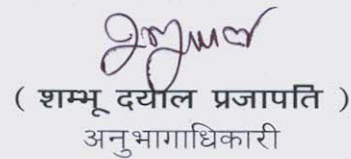 ( शम्भू दयाल प्रजापति )
अनुभागाधिकारी